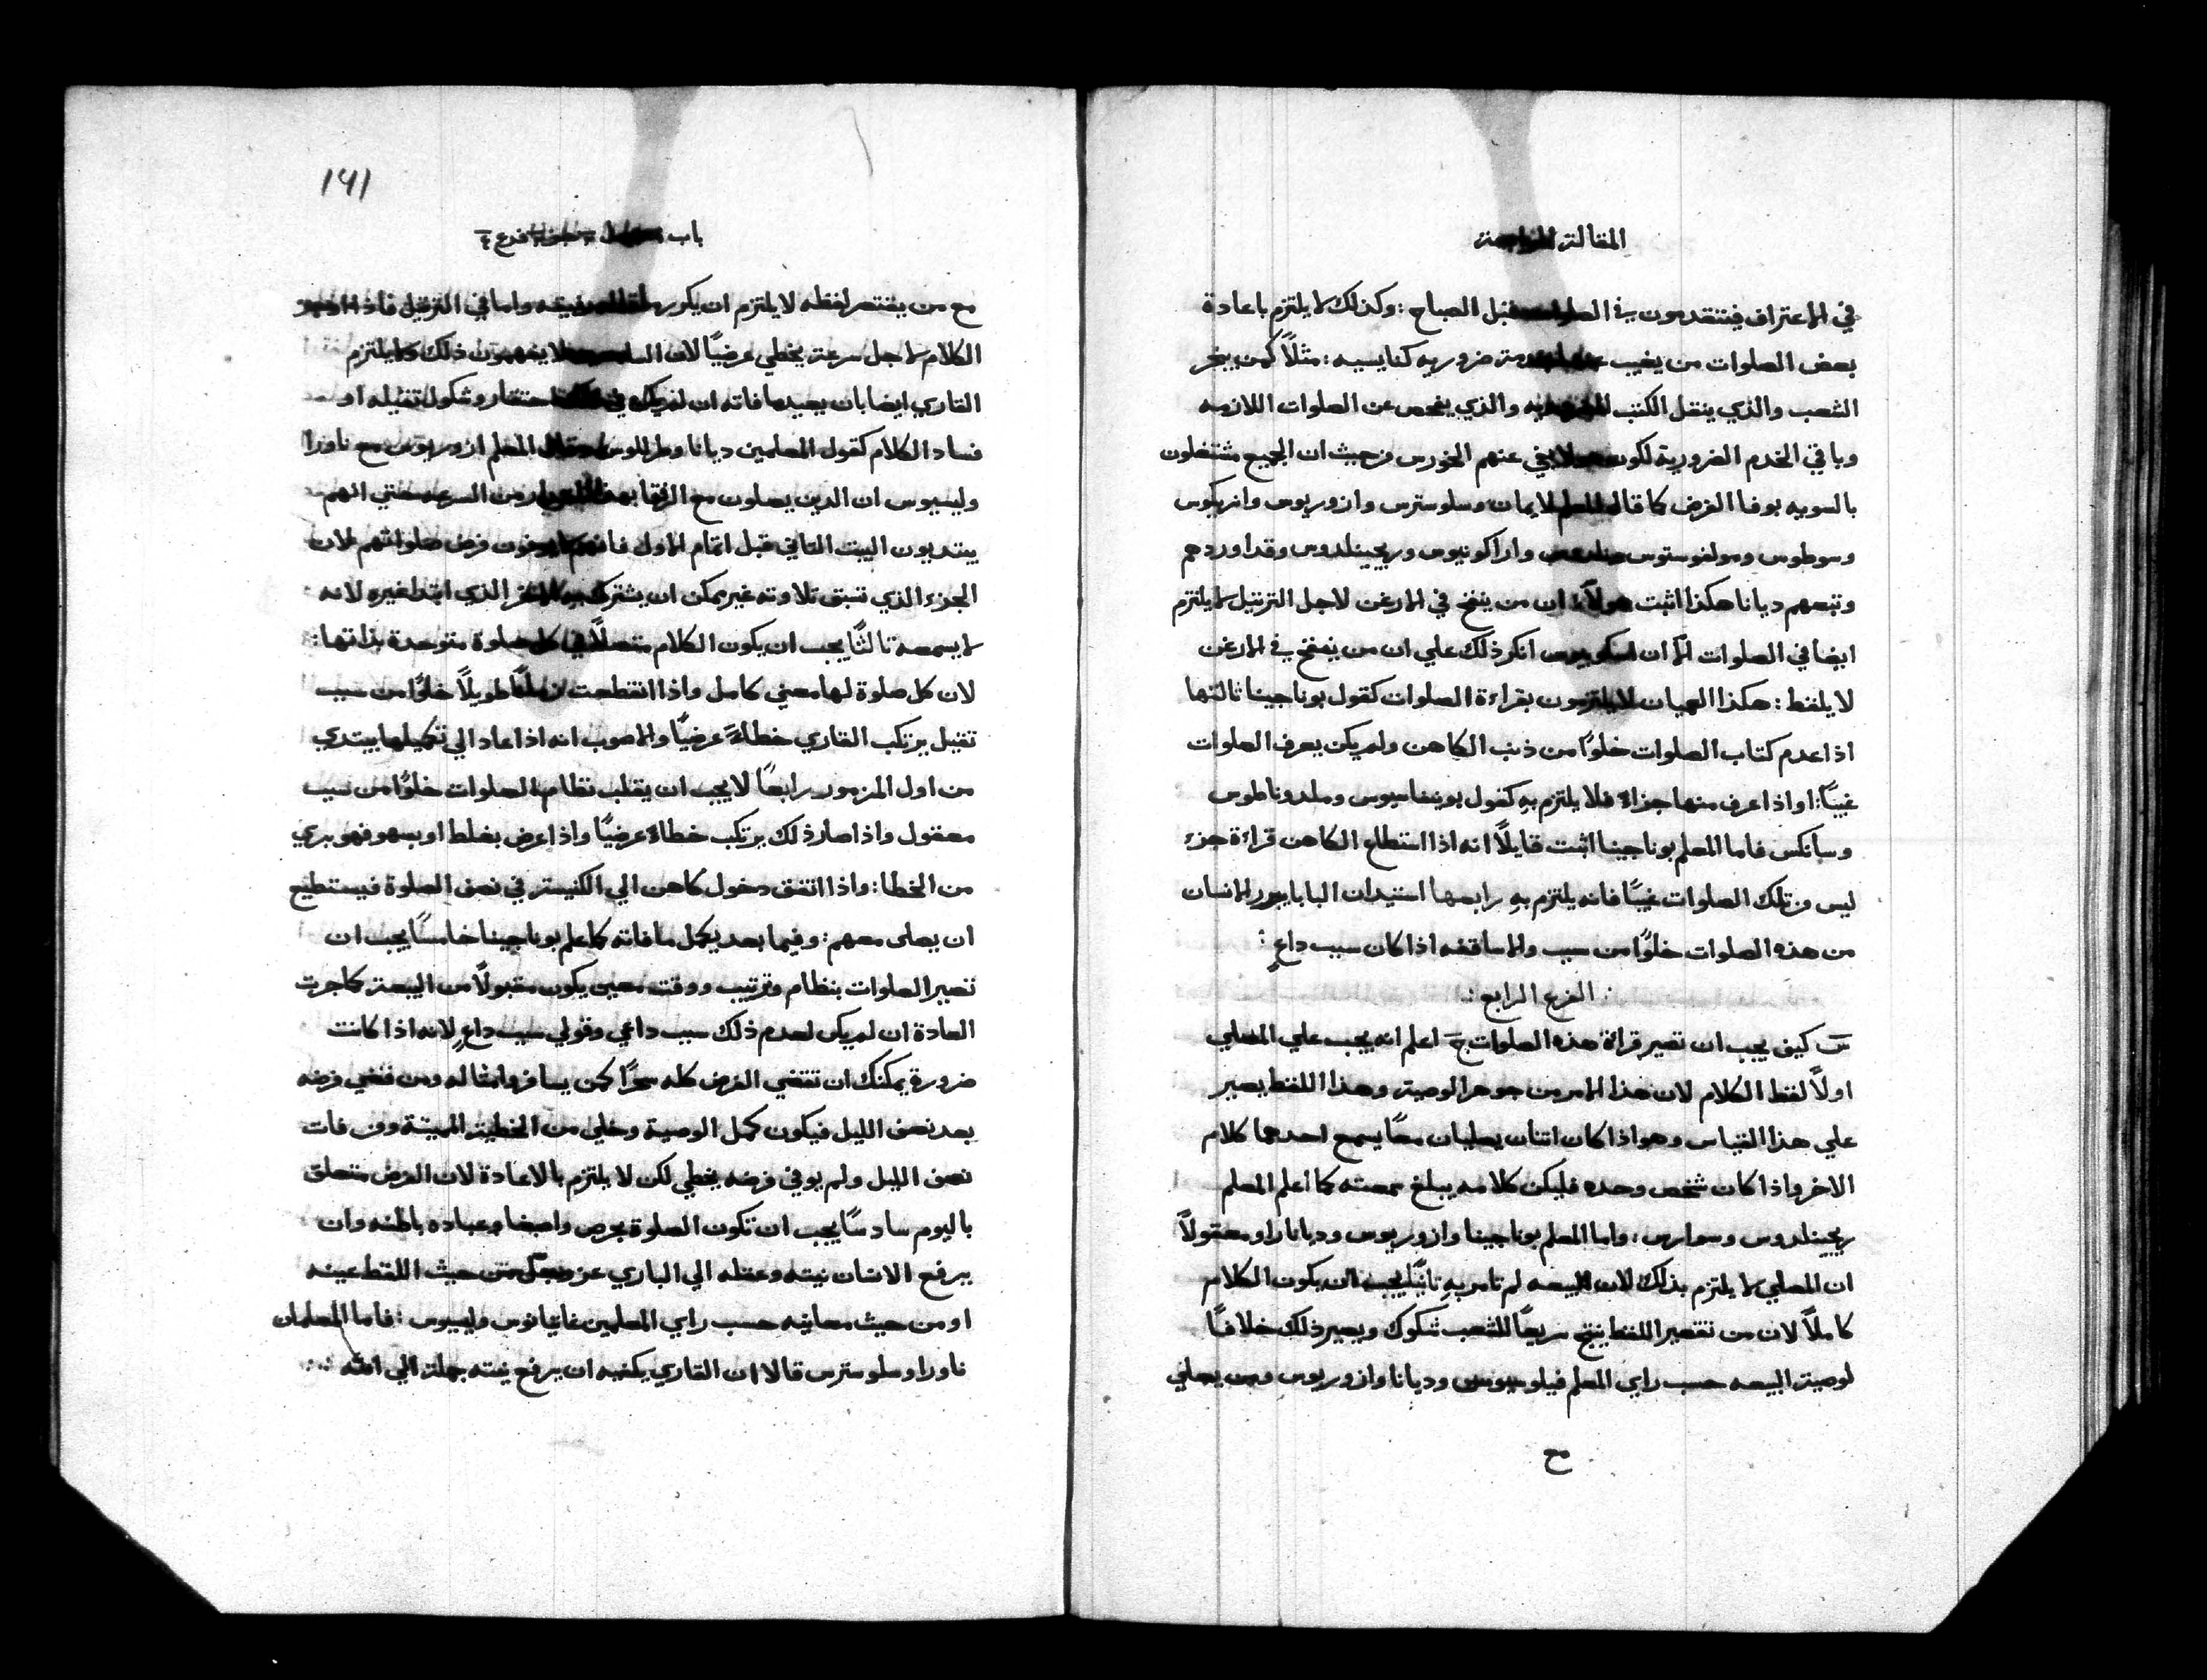 المقالة
في الاعتراف فيتقدمون في قبل الصباح : وكذلك لا يلتزم باعادة
بعض الصلوات من يغيب ضروريه كنايسيه : مثلاً كمن يبخر
الشعب والذي ينقل الكتب والذي يفحص عن الصلوات اللازمه
وباقي الخدم الضرورية لكون عنهم الخورس من حيث ان الجميع مشتغلون
بالسويه بوفا الفرض كما قال المعلم لايمان وسلوسترس وازوريوس وانريكوس
وسوطوس ومولفوستوس واراكونيوس وريجينلدوس وقد اوردهم
وتبعهم ديانا هكذا اثبت هولاء ان من ينفخ في الارغن لاجل الترتيل لا يلتزم
ايضا في الصلوات الا ان انكر ذلك علي ان من ينفخ في الارغن
لا يلفظ : هكذا العميان لا يلتزمون بقراءة الصلوات كقول بوناجينا ثالثها
اذا عدم كتاب الصلوات خلوًا من ذنب الكاهن ولم يكن يعرف الصلوات
غيبًا : او اذا عرف منها جزاء فلا يلتزم به كقول بونيفاسيوس وملدوناطوس
وسانكس فاما المعلم بوناجينا اثبت قايلاً انه اذا استطاع الكاهن قراءة جزء
ليس من تلك الصلوات غيبًا فانه يلتزم به رابعها استيدان البابا الانسان
من هذه الصلوات خلوًا من سبب والاساقفه اذا كان سبب داعٍ :
الفرع الرابع
س كيف يجب ان تصير قراءة هذه الصلوات ج اعلم انه يجب علي المصلي
اولاً لفظ الكلام لان هذا الامر من جوهر الوصية وهذا اللفظ يصير
علي هذا القياس وهو اذا كان اثنان يصليان معًا يسمع احدهما كلام
الاخر واذا كان شخص وحده فليكن كلامه يبلغ سمعته كما اعلم المعلم
ريجينلدوس وسوارس : واما المعلم بوناجينا وازوريوس وديانا راو معقولاً
ان المصلي لا يلتزم بذلك لان البيعه لم تامر به ثانيًا يجب ان يكون الكلام
كاملاً لان من تقصير اللفظ ينتج سريعًا للشعب شكوك ويصير ذلك خلافًا
لوصية البيعه حسب راي المعلم فيلوسيوس وديانا وازوريوس ومن يصلي
مع
١٩١
باب فرع ٤
مع من يقتصر لفظه لا يلتزم ان يكرر واما في الترتيل فاذا
الكلام لاجل سرعة يخطي عرضيًا لان لا يفهمون ذلك ولا يلتزم
القاري ايضا بان يعيدها فاته ان لم يكن احتقار وشكوك ثقيله او
فساد الكلام كقول المعلمين ديانا المعلم ازوريوس مع ناورا
وليسيوس ان الدين يصلون مع الرفقا من السرعه حتي انهم
يبتديون البيت الثاني قبل اتمام الاول فرض صلواتهم لان
الجزء الذي تسبق تلاوته غير ممكن ان يشترك به الذي ابتدا غيره لانه
لا يسمعه ثالثًا يجب ان يكون الكلام متصلاً في كل صلوة متوحدة بذاتها :
لان كل صلوة لها معني كامل واذا انقطعت زمانًا طويلاً خلوًا من سبب
تقيل يرتكب القاري خطاءً عرضيًا والاصوب انه اذا عاد الي تكميلها يبتدي
من اول المزمور رابعًا لا يجب ان يقلب نظام الصلوات خلوًا من سبب
معقول واذا صار ذلك يرتكب خطاء عرضيًا واذا عرض بغلط او بسهو فهو بري
من الخطا : واذا اتفق دخول كاهن الي الكنيسة في نصف الصلوة فيستطيع
ان يصلي معهم : وفيما بعد يكمل ما فاته كما علم بوناجينا خامسًا يجب ان
تصير الصلوات بنظام وترتيب ووقت معين يكون مقبولاً من البيعة كما جرت
العادة ان لم يكن لعدم ذلك سبب داعي وقولي سبب داعٍ لانه اذا كانت
ضرورة يمكنك ان تقتضي الفرض كله سحرًا كمن يسافر وامثاله ومن قضي فرضه
بعد نصف الليل فيكون كمل الوصية وخلي من الخطية المميتة ومن فات
نصف الليل ولم يوفي فرضه يخطي لكن لا يلتزم بالاعادة لان الفرض متعلق
باليوم سادسًا يجب ان تكون الصلوة بحرص واصغا وعباده باطنه وان
يرفع الانسان نيته وعقله الي الباري عز وجل من حيث اللفظ عينه
او من حيث معانيه حسب راي المعلمين غايتانوس وليسيوس : فاما المعلمان
ناورا وسلوسترس قالا ان القاري يكفيه ان يرفع نيته جملة الي الله